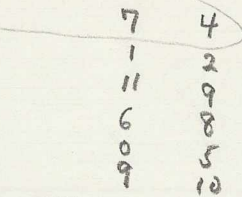 7 4
1 2
11 9
6 8
0 5
9 10